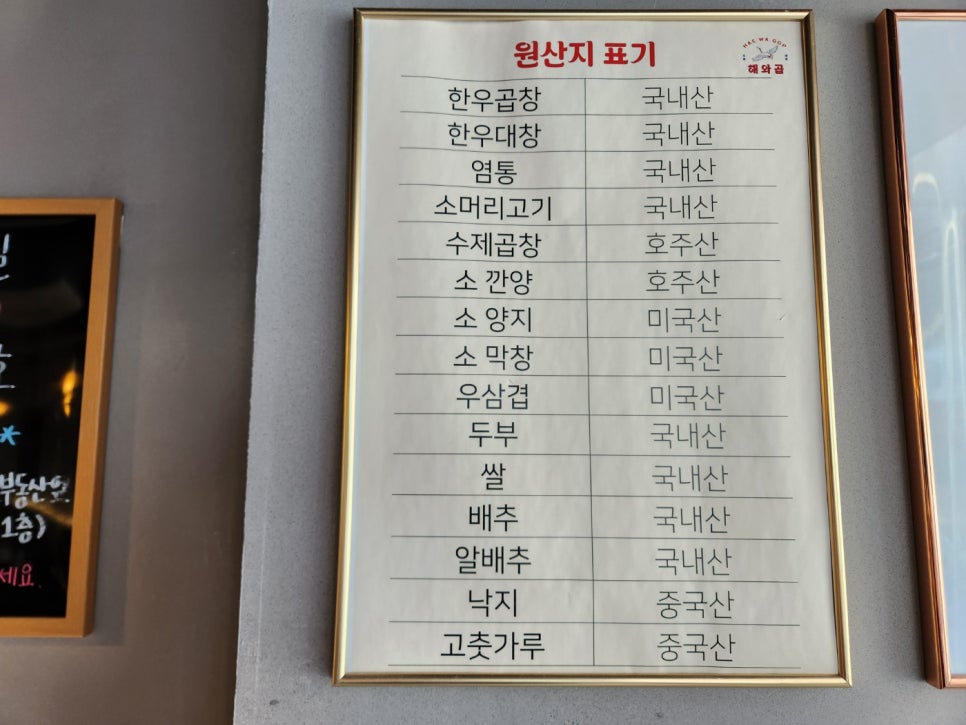 부동산옆
1층)
세요.
원산지 표기
HAE WA GOP
해와곱
한우곱창 국내산
한우대창 국내산
염통 국내산
소머리고기 국내산
수제곱창 호주산
소 깐양 호주산
소 양지 미국산
소 막창 미국산
우삼겹 미국산
두부 국내산
쌀 국내산
배추 국내산
알배추 국내산
낙지 중국산
고춧가루 중국산